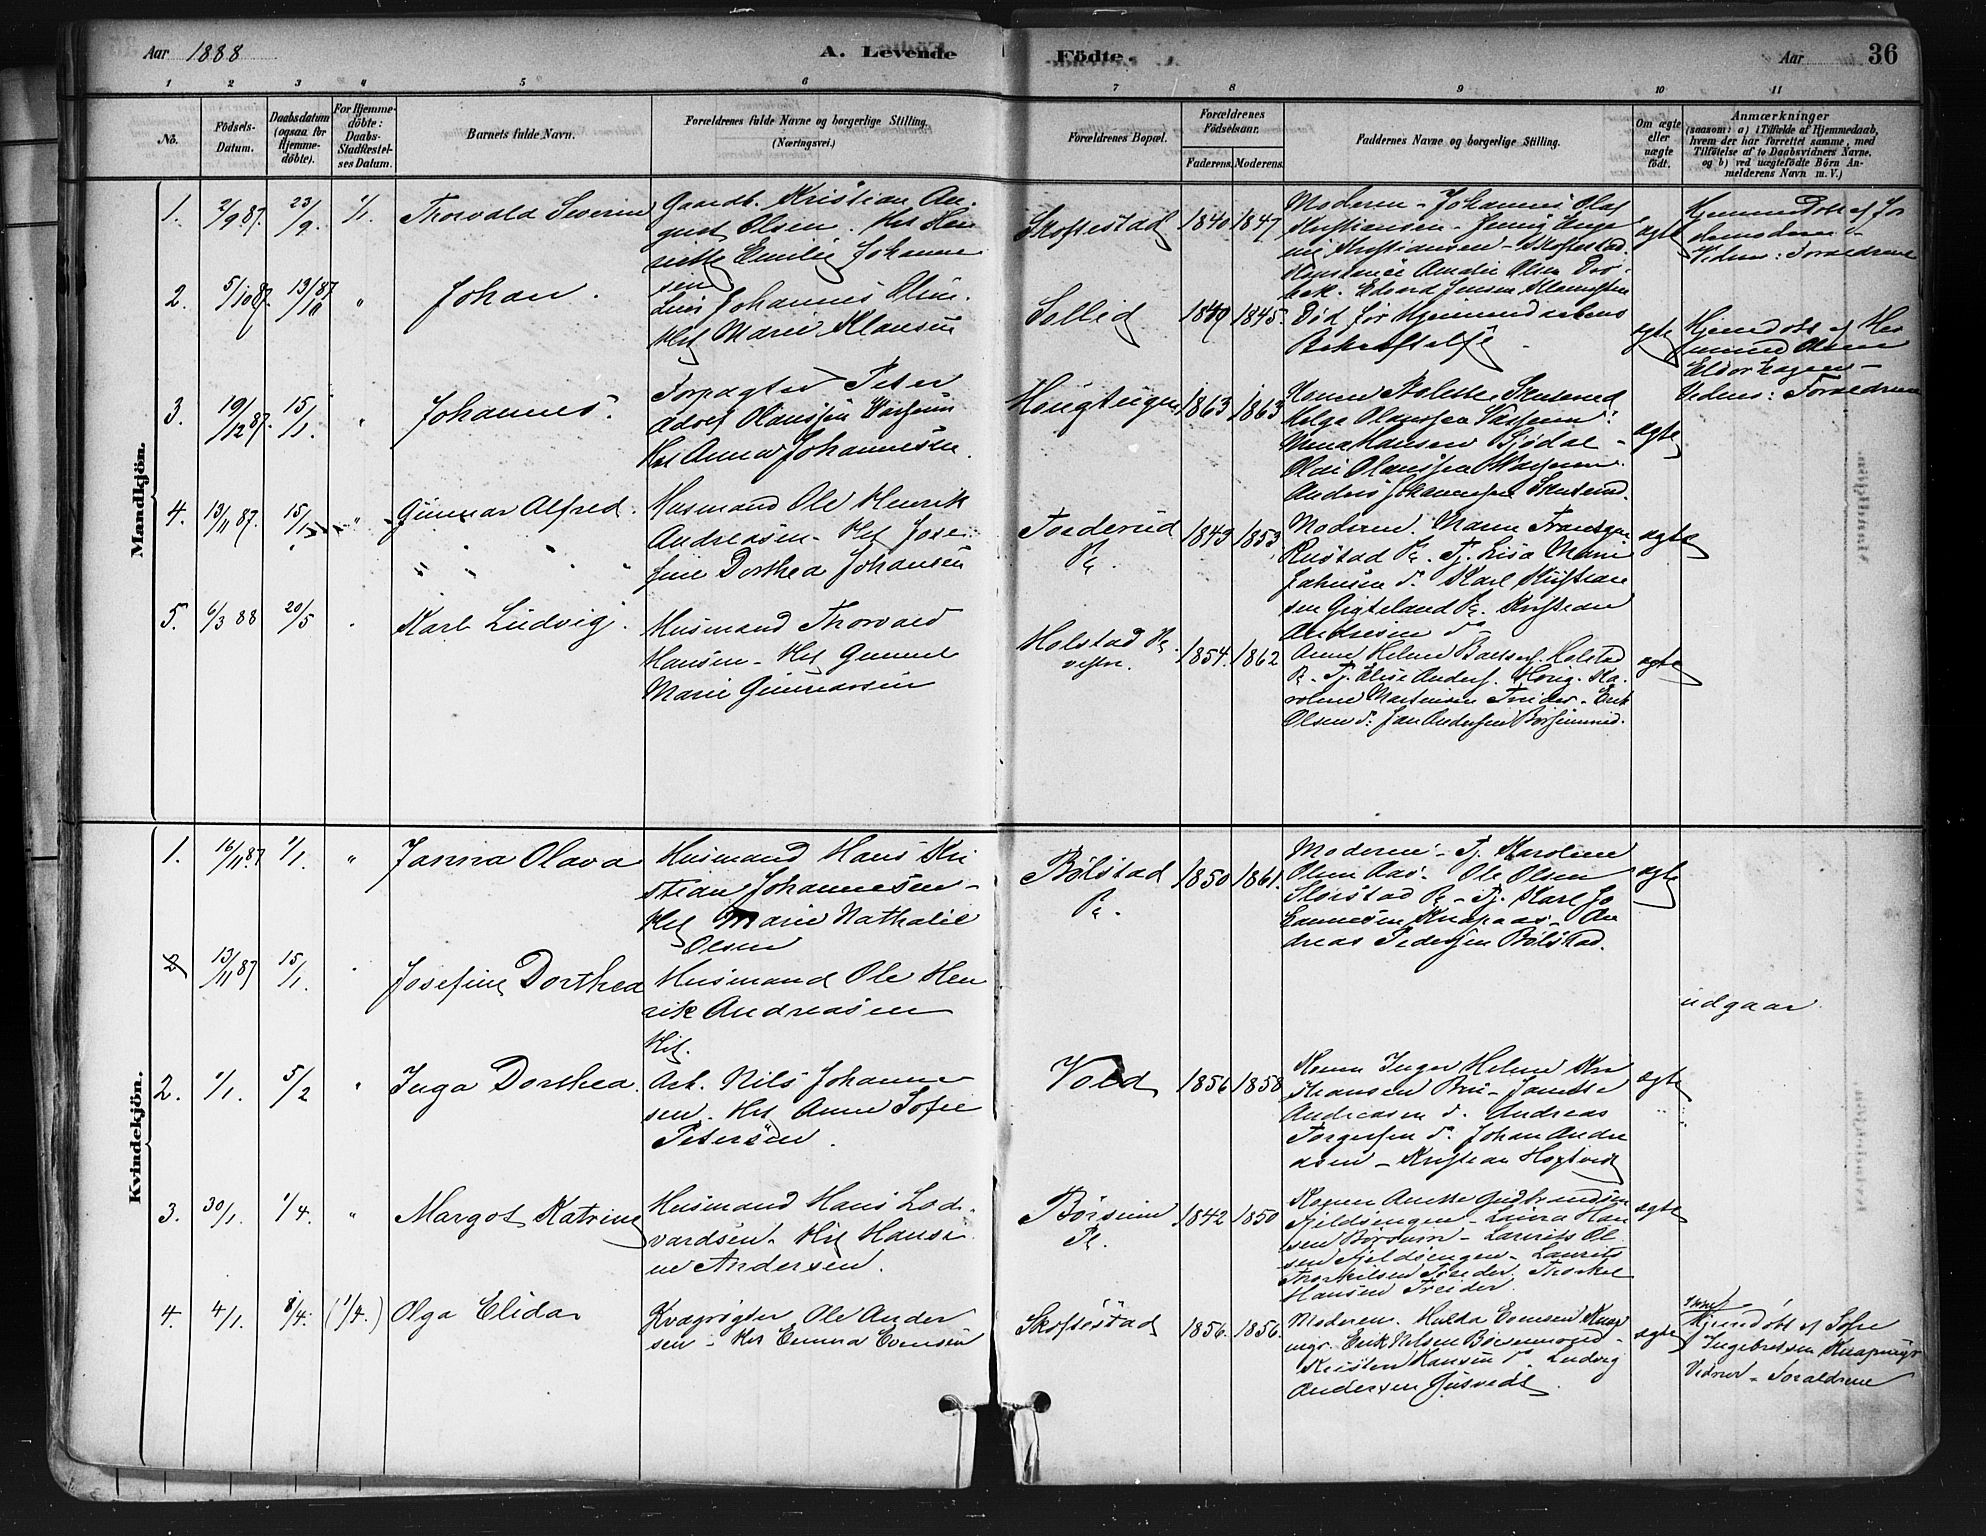 Aar 1888
A. Levende
Födte.
Aar
36
1 2 3 4 5 6 7 8 9 10 11
No.
Födsels-
Datum.
Daabsdatum
(ogsaa for
Hjemme-
döbte).
For Hjemme-
döbte:
Daabs-
Stadfæstel-
ses Datum.
Barnets fulde Navn.
Forældrenes fulde Navne og borgerlige Stilling.
(Næringsvei.)
Forældrenes Bopæl.
Forældrenes
Födselsaar.
Faderens. Moderens.
Faddernes Navne og borgerlige Stilling.
Om ægte
eller
uægte
födt.
Anmærkninger
(saasom: a) i Tilfælde af Hjemmedaab,
hvem der har forrettet samme, med
Tilföielse af to Daabsvidners Navne,
og b) ved uægtefödte Börn An-
melderens Navn m. V.)
Mandkjön.
1. 2/9 87. 23/9. 1/1. Thorvald Severin
Gaardb. Kristian Au-
gust Olsen. Hst Hen
riette Emilie Johanne
sen
Skoftestad 1840 1847
Moderen - Johannes Olaf
Kristiansen - Jenny Euge
nie Kristiansen - Skoftestad
Konstance Amalie Olsen Drö-
bak. Edvard Jensen
ægte
Hjemmedöbt af Jor
demoderen -
Vidner: Forældrene
2. 5/10 87. 13/10 87 " Johan.
Johannes Olsen.
Hst Marie Klausen
Sollid 1849 1845.
Död för Hjemmedaabens
Bekræftelse
ægte
Hjemdöbt af
Olsen
Vidner: Forældrene
3. 19/12 87. 15/1. " Johannes.
Forpagter Peter
Adolf Olaussen
Hst Anna Johannessen.
Hougteigen 1863 1863
Helga Olaussen
Hansen
Anders Johannessen
ægte
4. 13/11 87. 15/1 " Gunnar Alfred.
Husmand Ole Henrik
Andreasen - Hst Jose-
fine Dorthea Johansen
Foederud
Pl. 1849 1853
Moderen.
Rustad Pl. Tj. Lisa Marie
Johnsen do Karl Kristian
sen Gigteland Pl. Kristian
Andresen do
ægte
5. 6/3 88 20/5 " Karl Ludvig.
Husmand Thorvald
Hansen - Hst Gunnel
Marie Gunnarsen
Holstad Pl.
vestre. 1854. 1862
Anne Helene Holstad
Pl. Tj. Elise Anders. Ka-
roline Martinsen Treider. Erik
Olsen do. Jan Andersen
ægte
Kvindekjön.
1. 16/11 87 1/1. " Janna Olava
Husmand Hans Kri
stian Johannesen -
Hst Marie Nathalie
Olsen
Bölstad
Pl. 1850 1861.
Moderen - Tj. Karoline
Olsen Aas. Ole Olsen
Pl. Tj. Karl Jo
hannesen Knapaas - An
dreas Pedersen Bölstad.
ægte
2 13/11 87 15/1. " Josefine Dorthea
Husmand Ole Hen
rik Andreasen
Hst.
udgaar
2. 1/1. 5/2 " Inga Dorthea.
Arb. Nils Johanne
sen. Hst Anne Sofie
Petersen.
Vold 1856 1858
Konen Inger Helene Kri
stiansen Bru -
Andreasen do. Andreas
Torgersen do. Johan Andre
asen - Kristian Hogtvedt
ægte
3. 30/1. 1/4. " Margot Katrine
Husmand Hans Lod-
vardsen. Hst Hansi
ne Andersen.
Börsum
Pl. 1842 1850
Konen Anette Gudbrandsen
Fjeldsengen - Laura Han
sen Börsum - Laurits Ol
sen Fjeldsengen - Laurits
Thorkilsen Treider. Thorkel
Hansen Treider.
ægte
4. 4/1. 8/4. (1/4.) Olga Elida
Kvægrögter Ole Ander
sen - Hst Emma Evensen
Skoftestad 1856. 1856.
Moderen. Hulda Evensen Knap
myr. Erik Nilsen
Kristen Hansen do. Ludvig
Andersen Gusvedt.
ægte
Hjemdöbt af Sofie
Ingebretsen Knapmyr
Vidner - Forældrene